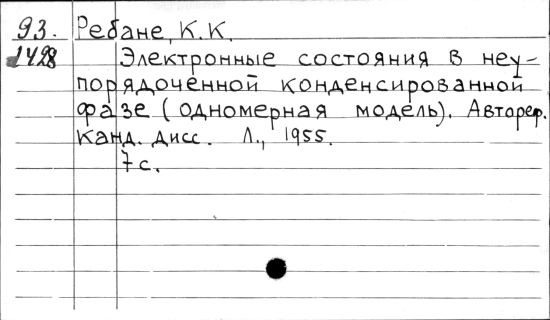 93. Ребане, К.К.
1428 Электронные состояния в неу-
порядоченной конденсированной
фазе (одномерная модель). Автореф.
Канд. дисс. Л., 1955.
7с.